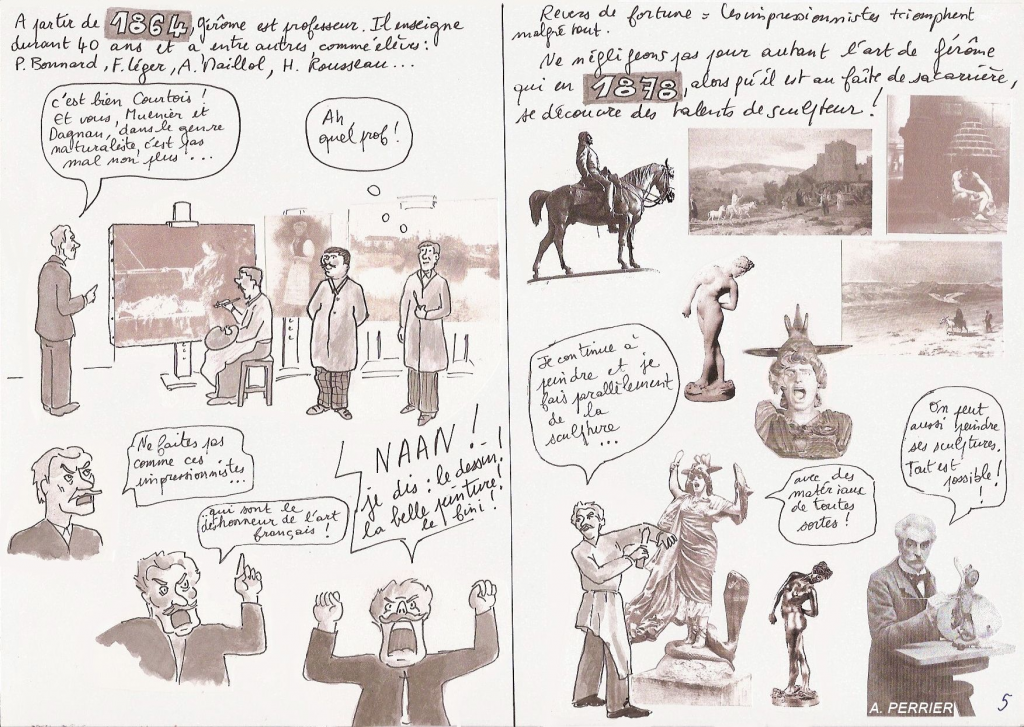 A partir de 1864, Gérôme est professeur. Il enseigne
durant 40 ans et a entre autres, comme élèves :
P. Bonnard, F. Léger, A. Maillol, H. Rousseau...
c'est bien Courtois !
Et vous, Muenier et
Dagnan, dans le genre
naturaliste, c'est pas
mal non plus ...
Ah,
quel prof !
Ne faites pas
comme ces
impressionnistes...
qui sont le
déshonneur de l'art
français !
NAAN !
je dis : le dessin !
la belle peinture !
le fini !
Revers de fortune = les impressionnistes triomphent
malgré tout.
Ne négligeons pas pour autant l'art de Gérôme
qui en 1878, alors qu'il est au faîte de sa carrière,
se découvre des talents de sculpteur !
Je continue à
peindre et je
fais parallèlement
de la
sculpture
...
avec des
matériaux
de toutes
sortes !
On peut
aussi peindre
ses sculptures.
Tout est
possible !
!
A. PERRIER
5